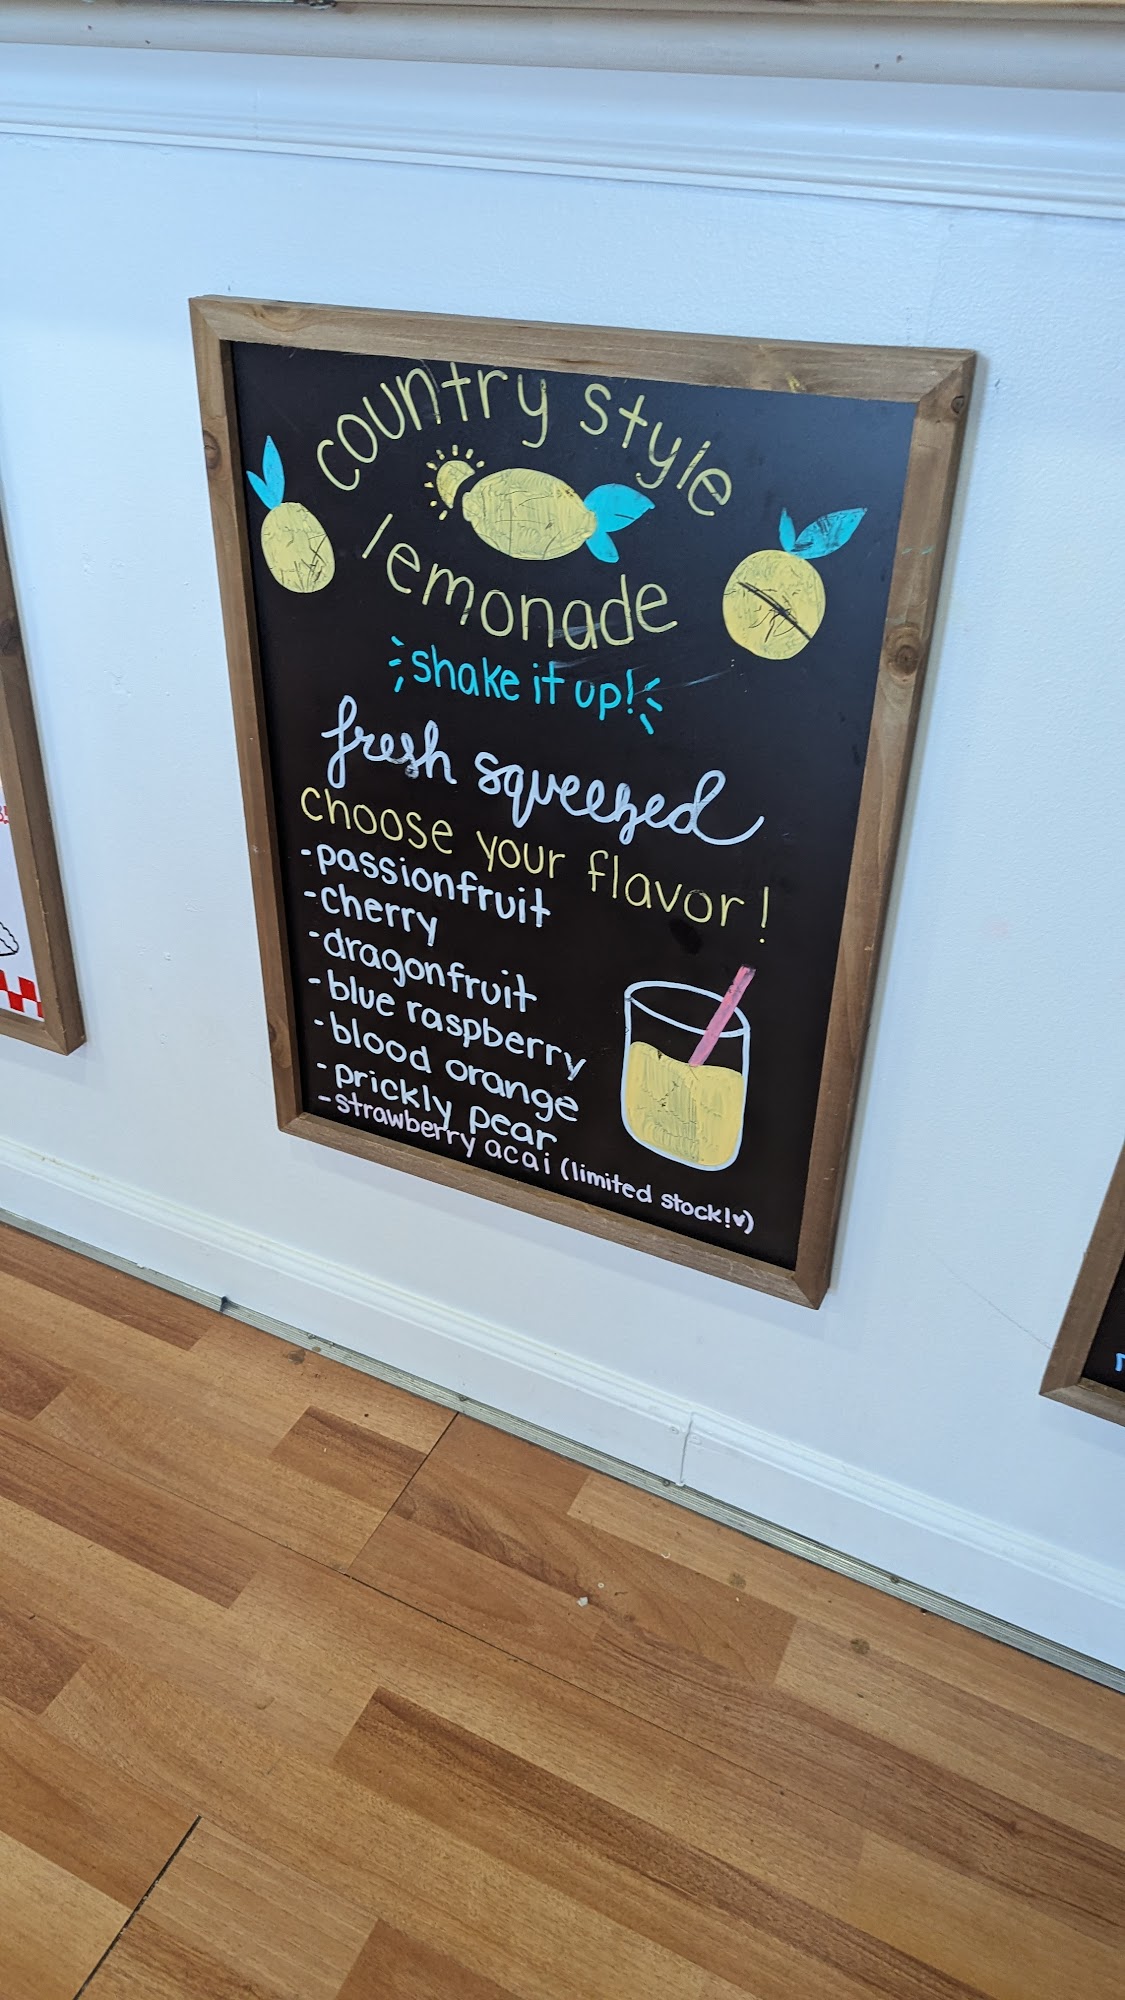 country style
lemonade
shake it up!
fresh squeezed
choose your flavor!
-passionfruit
-cherry
-dragonfruit
-blue raspberry
-blood orange
-prickly pear
-strawberry acai (limited stock!♥)